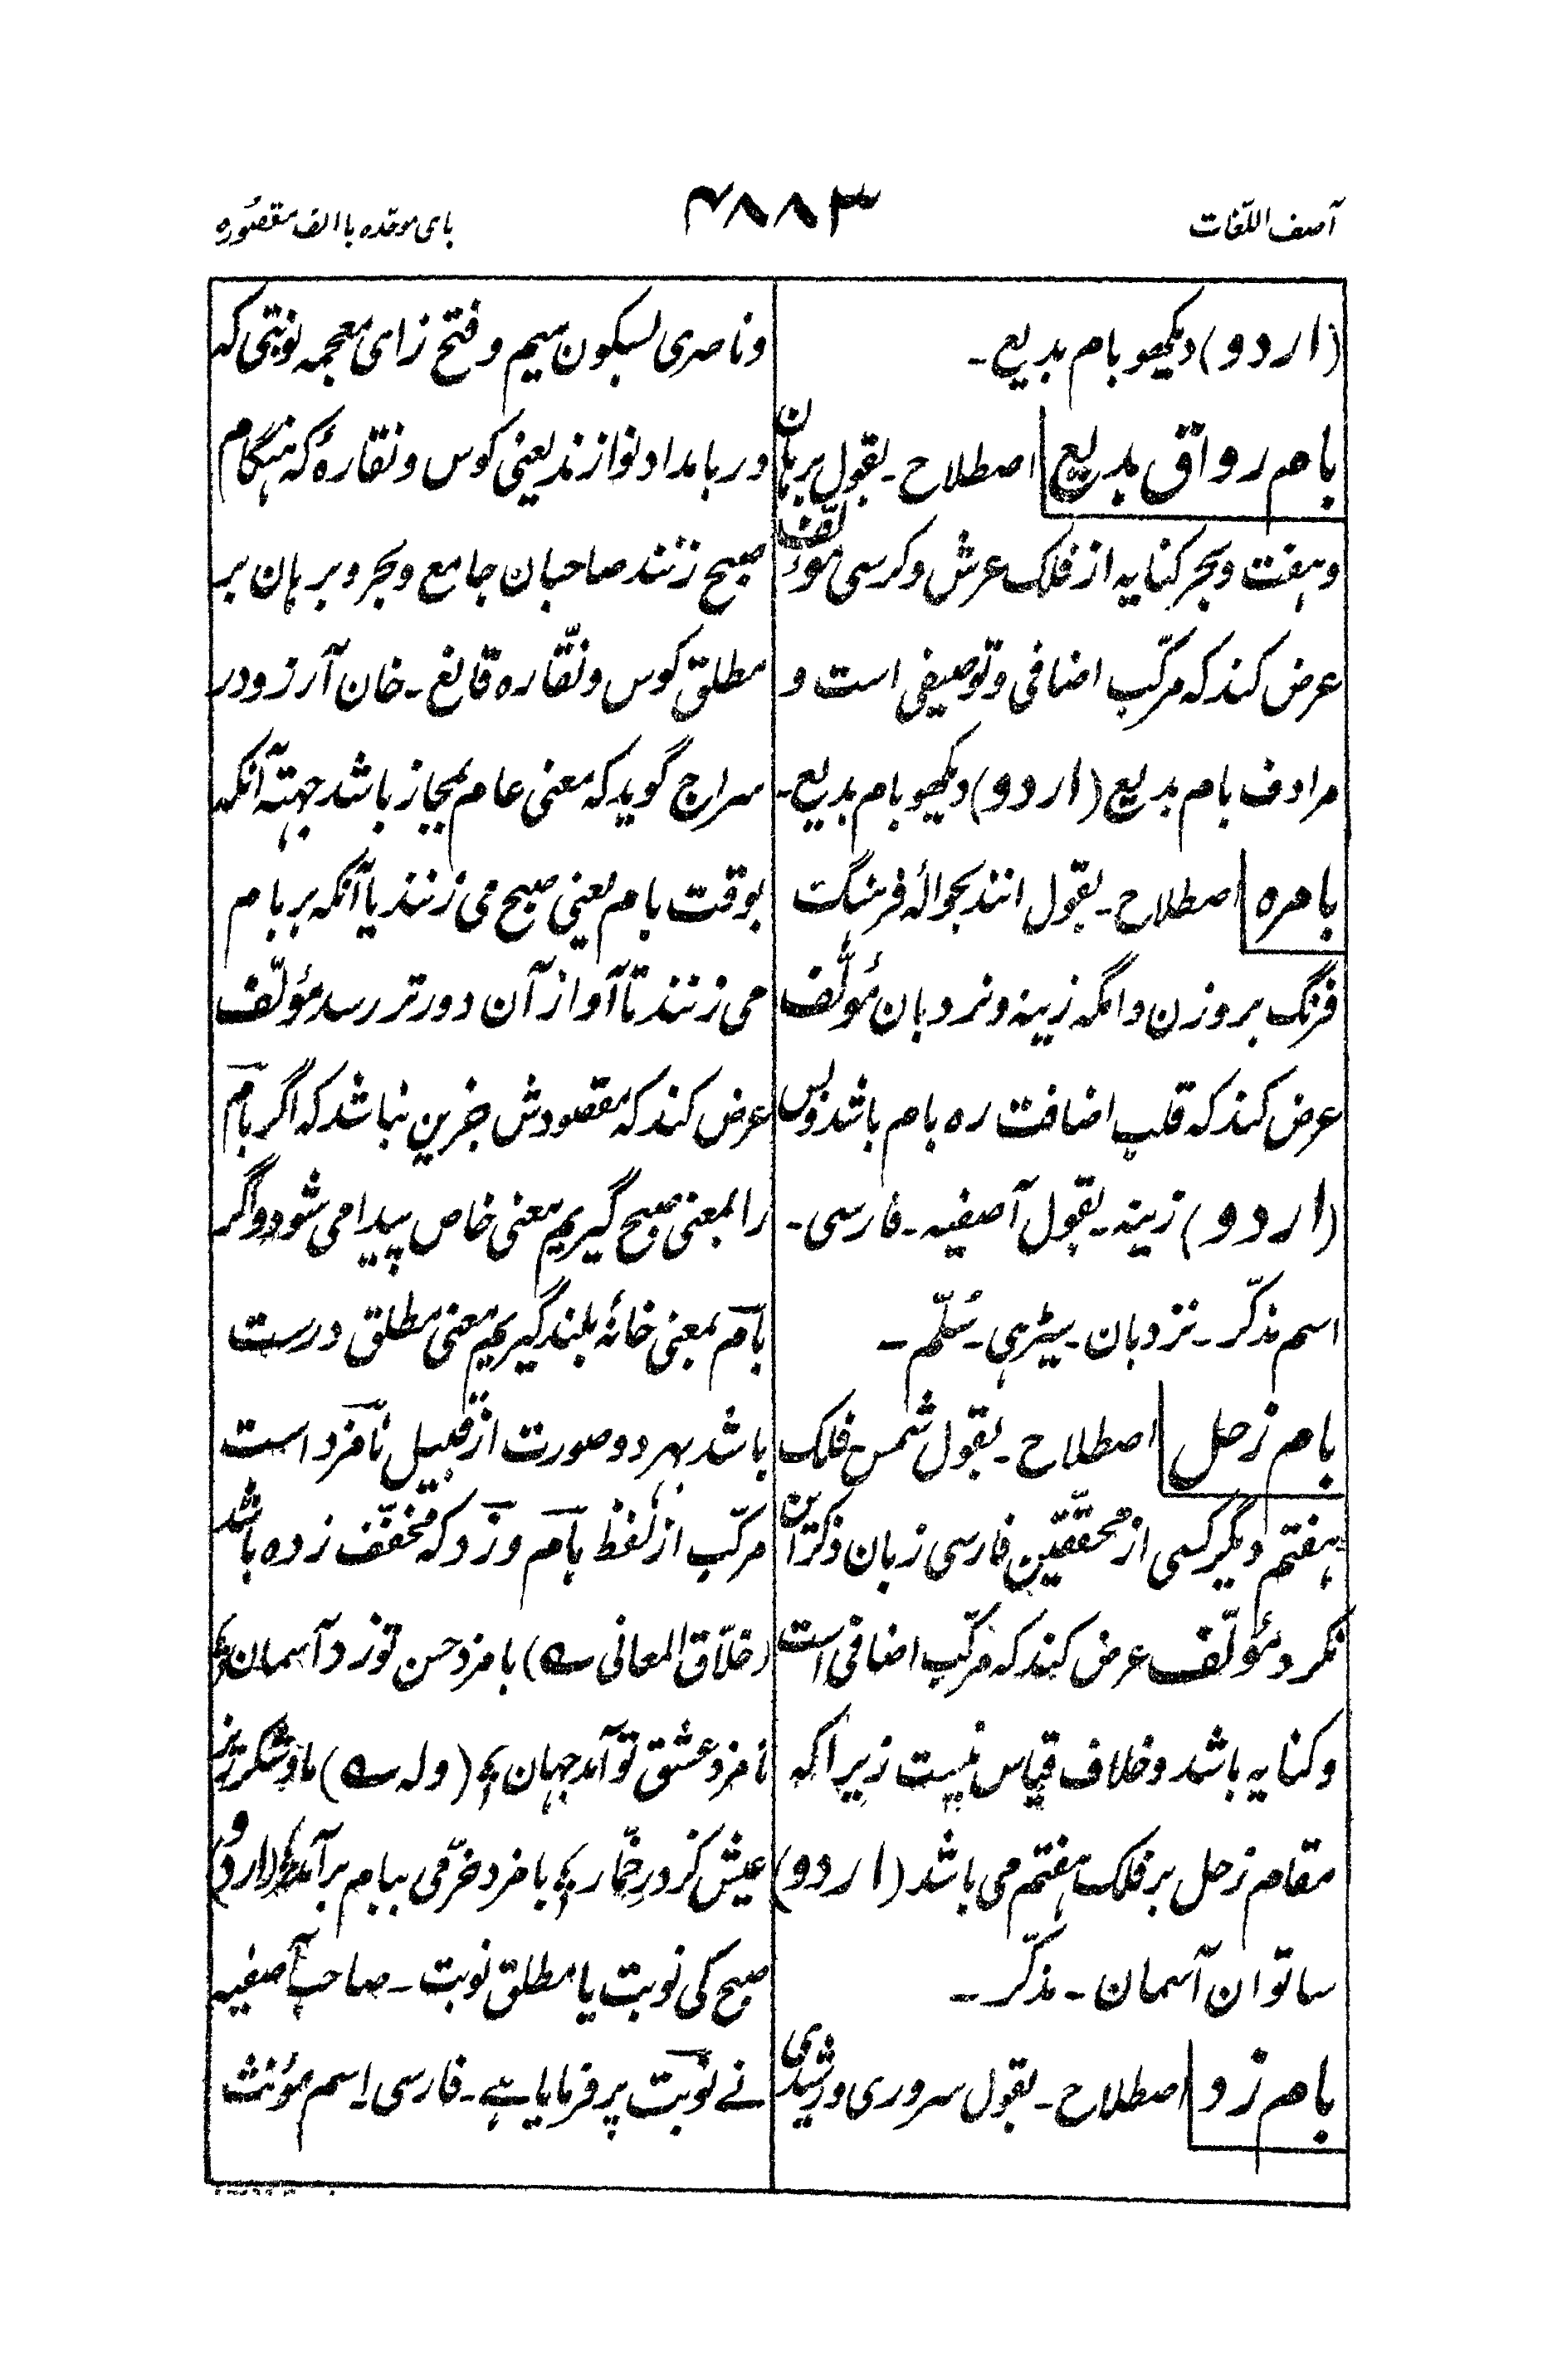 آصف اللّغات
۴۸۸۳
بای موحّده با الف مقصُوره
(اردو) دیکھو بام بدیع۔
بام رواق بدیع اصطلاح۔ بقول برہان
و ہفت و بحر کنایہ از فلک عرش و کرسی مؤلّف
عرض کند کہ مرکّب اضافی و توصیفی است و
مرادف بام بدیع (اردو) دیکھو بام بدیع۔
بامره اصطلاح۔ بقول انند بحوالۂ فرہنگ
فرنگ بروزن دامگہ زینہ و نردبان مؤلّف
عرض کند کہ قلب اضافت ره بام باشد و بس
(اردو) زینہ۔ بقول آصفیہ۔ فارسی۔
اسم مذکّر۔ نردبان۔ سیڑہی۔ سُلّم۔
بام زحل اصطلاح۔ بقول شمس فلک
ہفتم دیگر کسی از محقّقین فارسی زبان ذکر این
نکرد مؤلّف عرض کند کہ مرکّب اضافی است
و کنایہ باشد و خلاف قیاس نیست زیرا کہ
مقام زحل بر فلک ہفتم می باشد (اردو)
ساتوان آسمان۔ مذکّر۔
بام زد اصطلاح۔ بقول سروری و رشیدی
و ناصری بسکون میم و فتح زای معجمہ نوبتی کہ
در بامداد نوازند یعنی کوس و نقارۂ کہ ہنگام
صبح زنند صاحبان جامع و بحر و برہان بر
مطلق کوس و نقّاره قانع۔ خان آرزو در
سراج گوید کہ معنی عام بمجاز باشد جہتہ آنکہ
بوقت بام یعنی صبح می زنند یا آنکہ بر بام
می زنند تا آواز آن دورتر رسد مؤلّف
عرض کند کہ مقصودش جزین نباشد کہ اگر بام
را بمعنی صبح گیریم معنی خاص پیدا می شود و اگر
بام بمعنی خانۂ بلند گیریم معنی مطلق درست
باشد بہر دو صورت از قبیل نامزد است
مرکّب از لفظ بام و زد کہ مخفّف زده باشد
(خلّاق المعانی ؎) بامزد حسن تو زد آسمان ؏
نامزد عشق تو آمد جہان ؏ (ولہ ؎) ماه شکرریز
عیش کرد در خمّار ؏ بامزد خرّمی ببام برآمد ؏ (اردو)
صبح کی نوبت یا مطلق نوبت۔ صاحب آصفیہ
نے نوبت پر فرمایا ہے۔ فارسی۔ اسم مؤنث